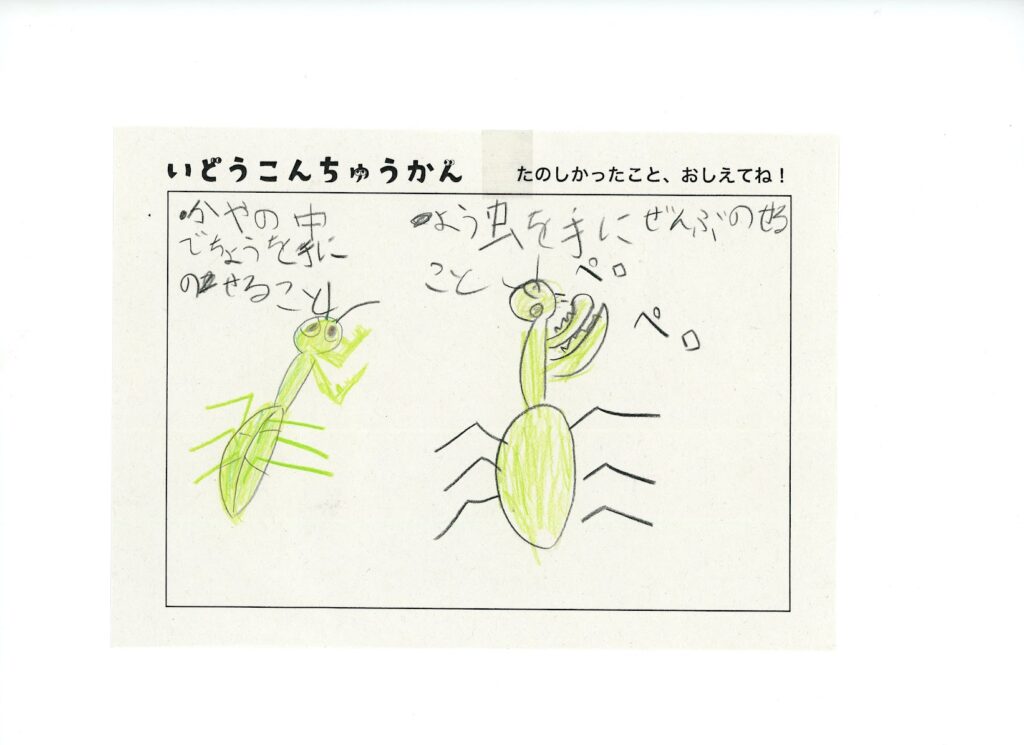 いどうこんちゅうかん
たのしかったこと、おしえてね！
・かやの中
でちょうを手に
のせること
・よう虫を手にぜんぶのせる
こと
ペロ
ペロ